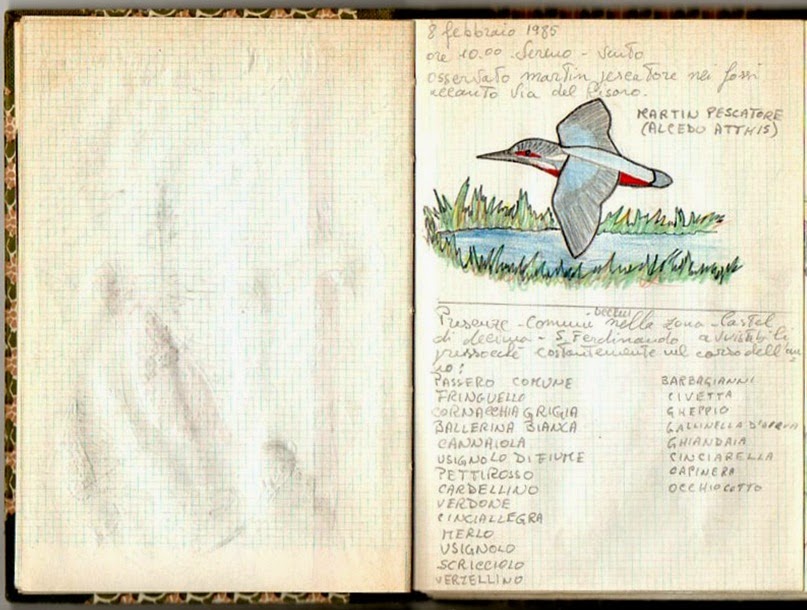 8 febbraio 1985
ore 10.00 Sereno - Vento
osservato martin pescatore nei fossi
accanto Via del Risaro.
MARTIN PESCATORE
(ALCEDO ATTHIS)
Presenze - Comuni uccelli nella zona - Castel
di decima - S. Ferdinando avvistabili
pressoché costantemente nel corso dell'an
no:
PASSERO COMUNE
FRINGUELLO
CORNACCHIA GRIGIA
BALLERINA BIANCA
CANNAIOLA
USIGNOLO DI FIUME
PETTIROSSO
CARDELLINO
VERDONE
CINCIALLEGRA
MERLO
USIGNOLO
SCRICCIOLO
VERZELLINO
BARBAGIANNI
CIVETTA
GHEPPIO
GALLINELLA D'ACQUA
GHIANDAIA
CINCIARELLA
CAPINERA
OCCHIOCOTTO